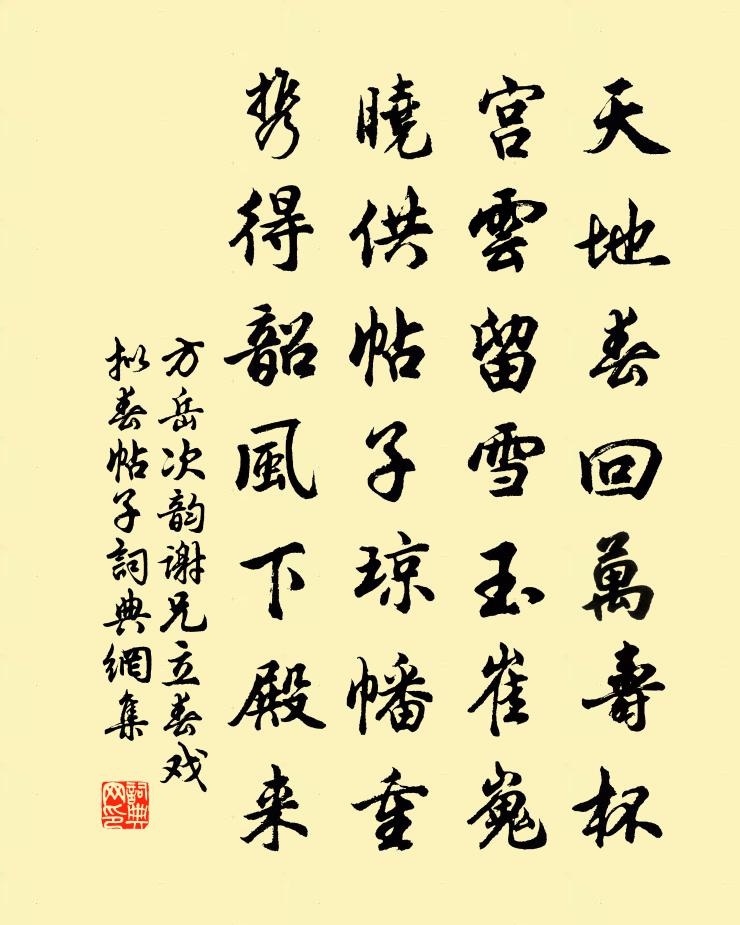 天地春回萬壽杯
宮雲留雪玉崔嵬
曉供帖子琼幡重
携得韶風下殿来
方岳次韵谢兄立春戏
拟春帖子詞典網集
詞典网印